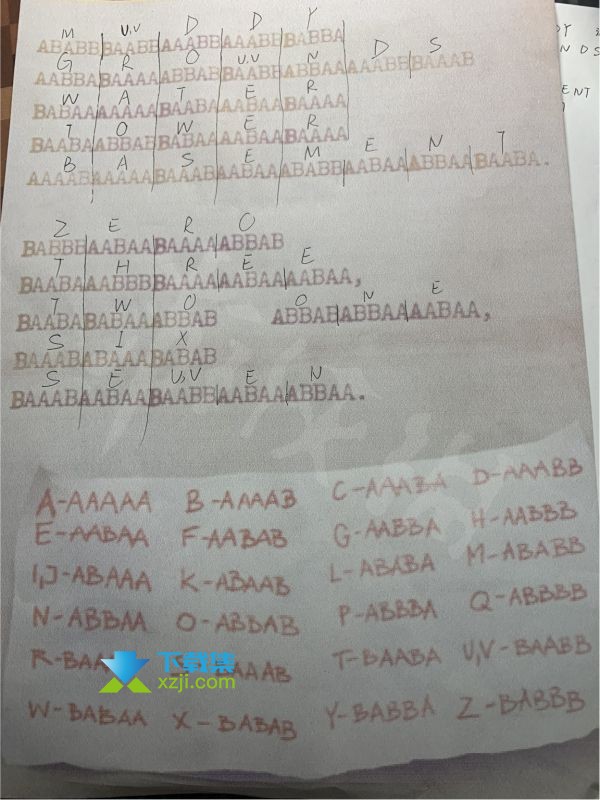 M U,V D D Y
ABABB BAABB AAABB AAABB BABBA
G R O U,V N D S
AABBA BAAAA ABBAB BAABB ABBAA AAABB BAAAB
W A T E R
BABAA AAAAA BAABA AABAA BAAAA
T O W E R
BAABA ABBAB BABAA AABAA BAAAA
B A S E M E N T
AAAAB AAAAA BAAAB AABAA ABABB AABAA ABBAA BAABA.
DY
NDS
ENT
Z E R O
BABBB AABAA BAAAA ABBAB
T H R E E
BAABA AABBB BAAAA AABAA AABAA,
T W O O N E
BAABA BABAA ABBAB ABBAB ABBAA AABAA,
S I X
BAAAB ABAAA BABAB
S E U,V E N
BAAAB AABAA BAABB AABAA ABBAA.
A-AAAAA B-AAAAB C-AAABA D-AAABB
E-AABAA F-AABAB G-AABBA H-AABBB
I,J-ABAAA K-ABAAB L-ABABA M-ABABB
N-ABBAA O-ABBAB P-ABBBA Q-ABBBB
R-BAA AAAB T-BAABA U,V-BAABB
下载集
xzji.com
W-BABAA X-BABAB Y-BABBA Z-BABBB